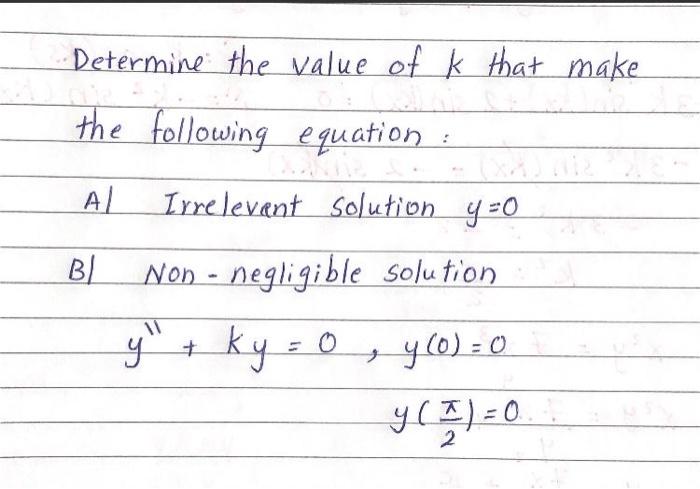 Determine the value of k that make
the following equation :
A| Irrelevant solution y=0
B| Non - negligible solution
y" + ky = 0 , y(0) = 0
y(π/2) = 0